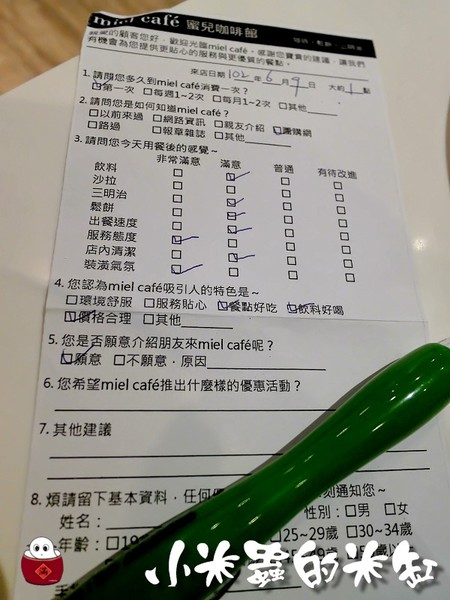 miel café 蜜兒咖啡館
親愛的顧客您好，歡迎光臨miel café。感謝您寶貴的建議，讓我們
有機會為您提供更貼心的服務與更優質的餐點。
來店日期 102 年 6 月 9 日 大約 1 點
1. 請問您多久到miel café消費一次？
☑第一次 □每週1~2次 □每月1~2次 □其他
2. 請問您是如何知道miel café？
□以前來過 □網路資訊 □親友介紹 ☑團購網
□路過 □報章雜誌 □其他
3. 請問您今天用餐後的感覺~
非常滿意 滿意 普通 有待改進
飲料 □ ☑ □ □
沙拉 □ □ □ □
三明治 □ ☑ □ □
鬆餅 □ ☑ □ □
出餐速度 □ ☑ □ □
服務態度 ☑ □ □ □
店內清潔 □ ☑ □ □
裝潢氣氛 ☑ □ □ □
4. 您認為miel café吸引人的特色是~
□環境舒服 □服務貼心 ☑餐點好吃 ☑飲料好喝
☑價格合理 □其他
5. 您是否願意介紹朋友來miel café呢？
☑願意 □不願意，原因
6. 您希望miel café推出什麼樣的優惠活動？
7. 其他建議
8. 煩請留下基本資料，任何優 刻通知您~
姓名： 性別：□男 □女
年齡：□19 □25~29歲 □30~34歲
小米蟲的米缸